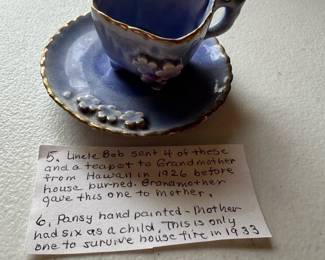 5. Uncle Bob sent 4 of these
and a teapot to Grandmother
from Hawaii in 1926 before
house burned. Grandmother
gave this one to Mother.
6. Pansy hand painted - Mother
had six as a child. This is only
one to survive house fire in 1933